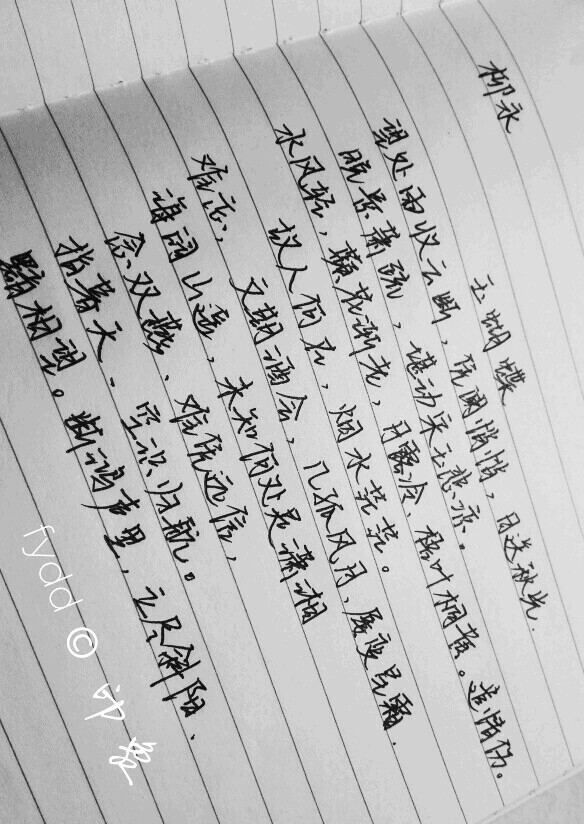 柳永
玉蝴蝶
望处雨收云断,凭阑悄悄,目送秋光.
晚景萧疏,堪动宋玉悲凉。
水风轻,蘋花渐老,月露冷、梧叶飘黄。遣情伤。
故人何在,烟水茫茫。
难忘,文期酒会,几孤风月,屡变星霜.
海阔山遥,未知何处是潇湘
念双燕、难凭远信,
指暮天、空识归航。
黯相望。断鸿声里,立尽斜阳.
fydd©